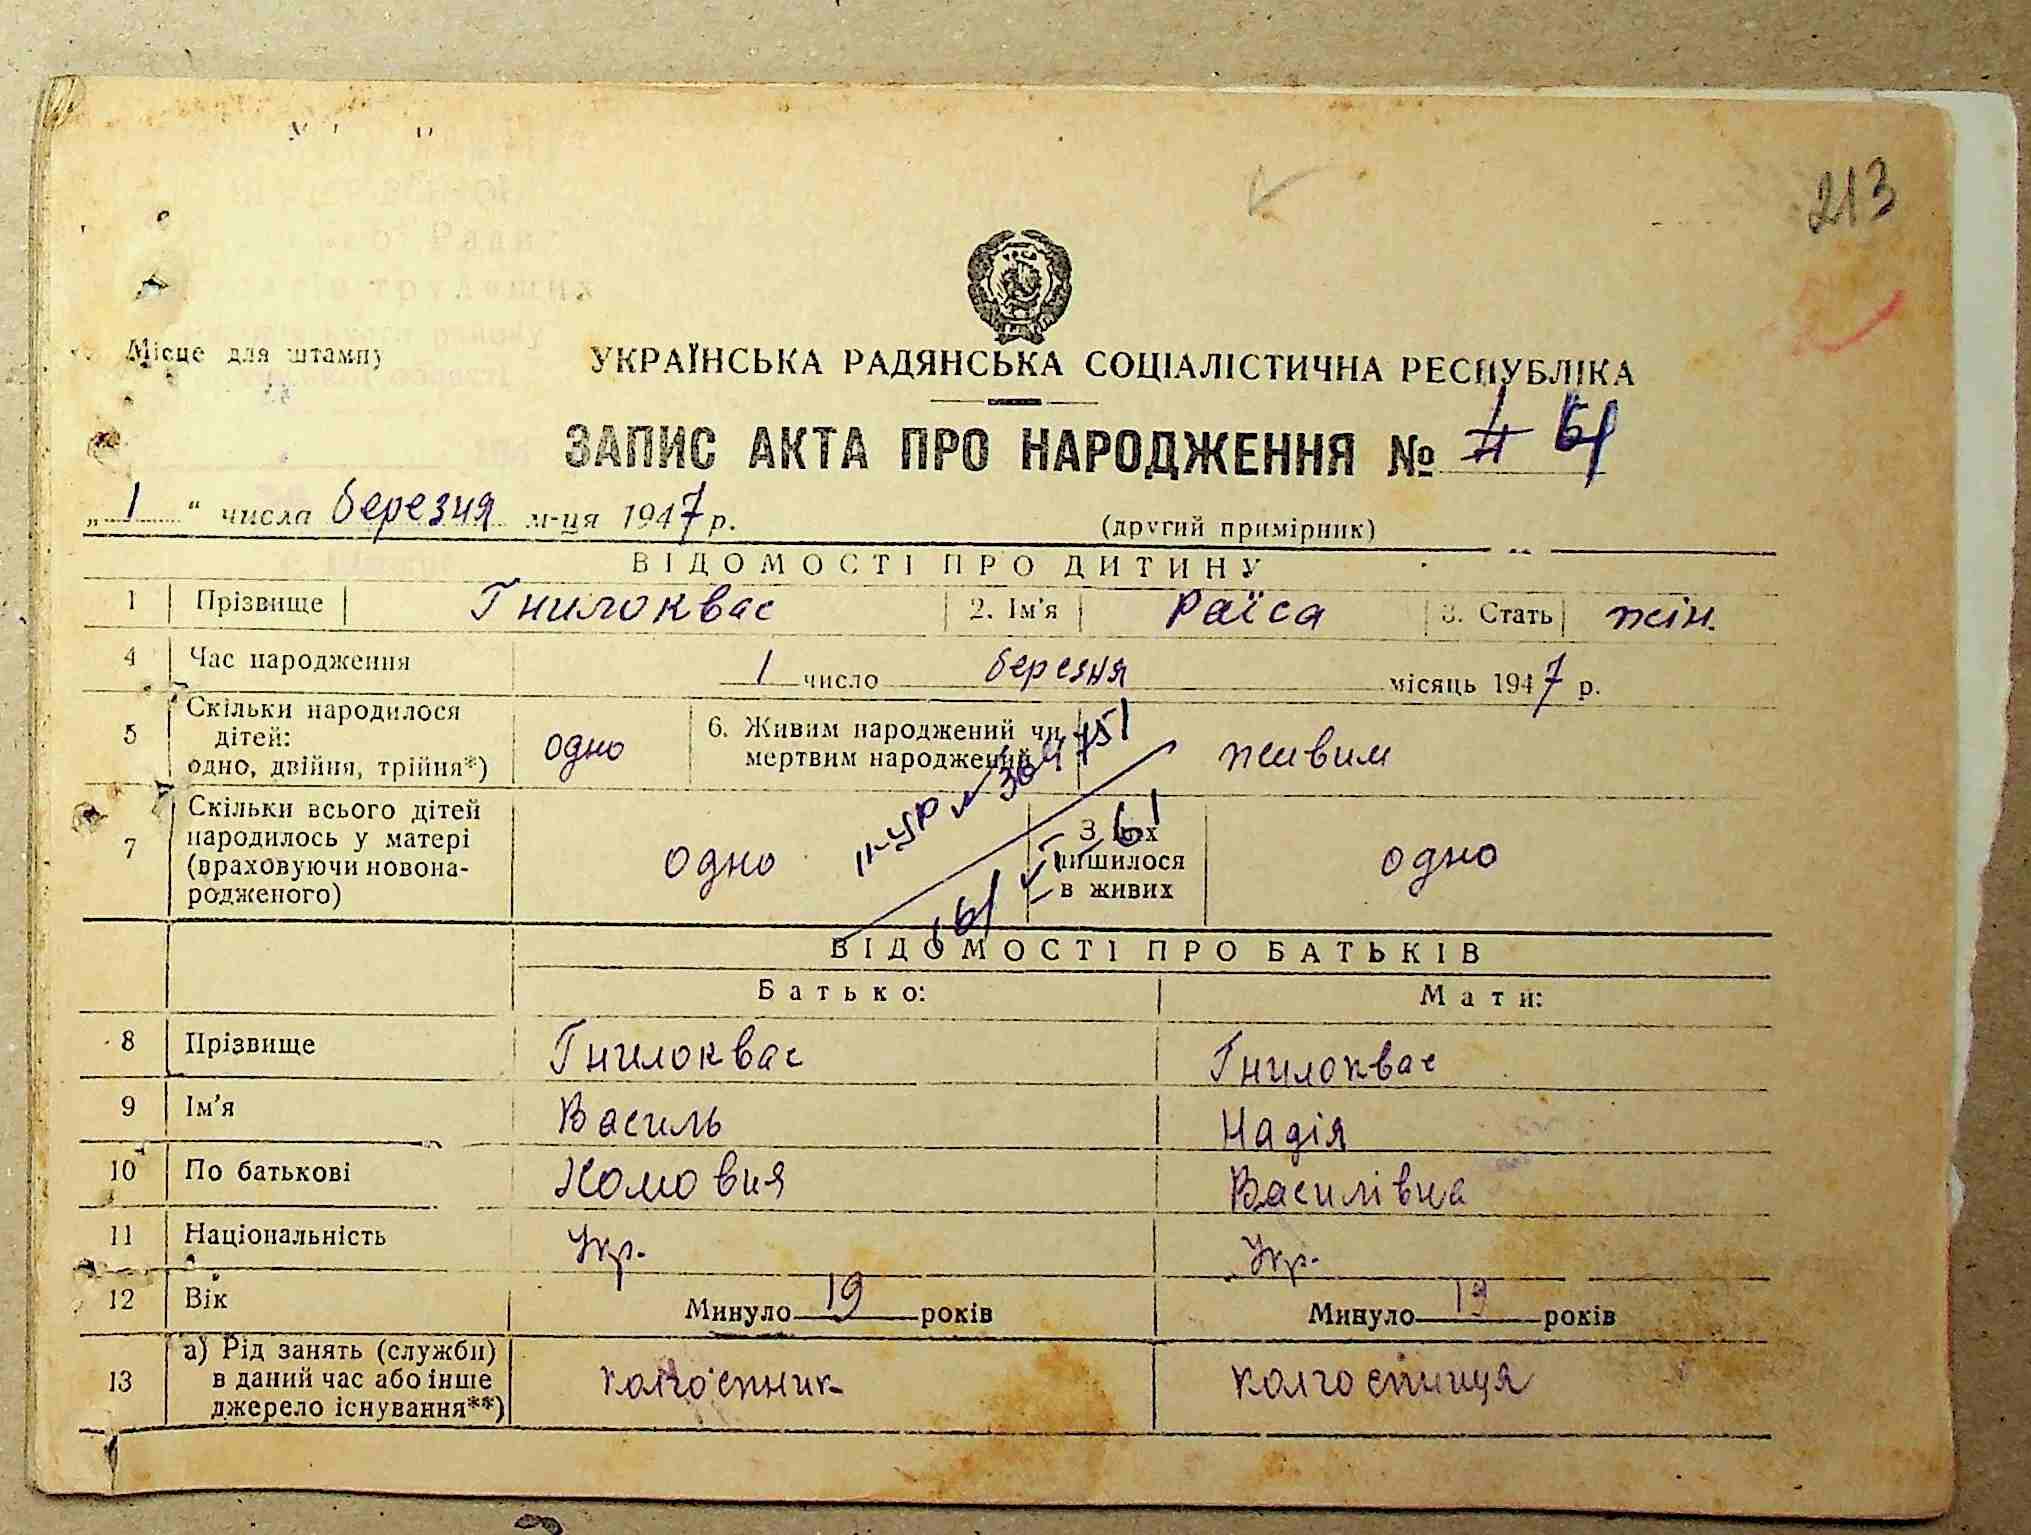 213
Місце для штампу
УКРАЇНСЬКА РАДЯНСЬКА СОЦІАЛІСТИЧНА РЕСПУБЛІКА
ЗАПИС АКТА ПРО НАРОДЖЕННЯ № 61
„1“ числа березня м-ця 1947 р.
(другий примірник)
ВІДОМОСТІ ПРО ДИТИНУ
1 Прізвище Гнилоквас 2. Ім'я Раїса 3. Стать жін.
4 Час народження 1 число березня місяць 1947 р.
5 Скільки народилося дітей: одно, двійня, трійня*) одно 6. Живим народжений чи мертвим народжений живим
7 Скільки всього дітей народилось у матері (враховуючи новонародженого) одно З них лишилося в живих одно
ВІДОМОСТІ ПРО БАТЬКІВ
Батько: Мати:
8 Прізвище Гнилоквас Гнилоквас
9 Ім'я Василь Надія
10 По батькові Хомович Василівна
11 Національність Укр. Укр.
12 Вік Минуло 19 років Минуло 19 років
13 а) Рід занять (служби) в даний час або інше джерело існування**) колгоспник колгоспниця